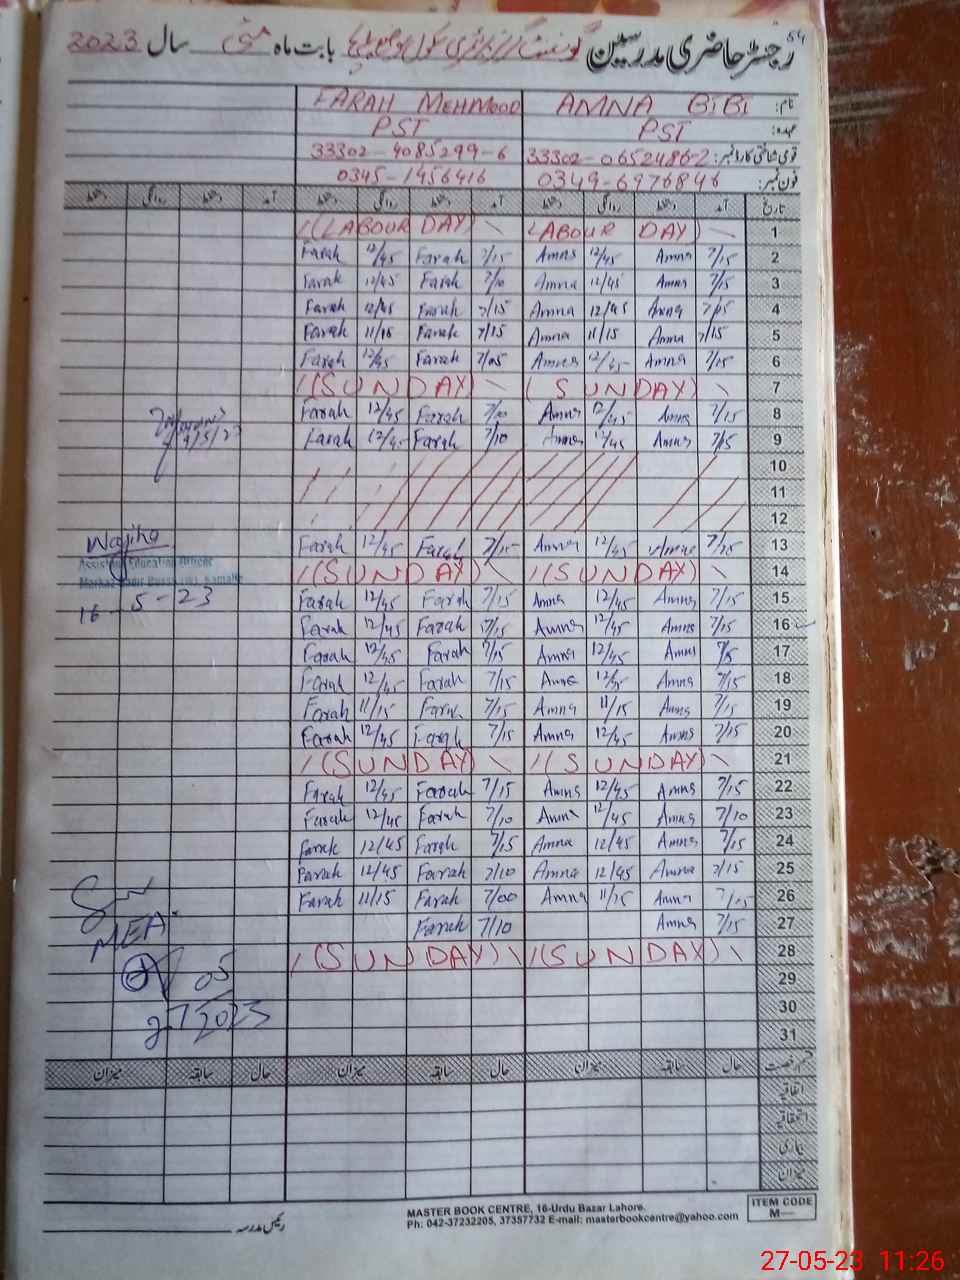 54
رجسٹر حاضری مدرسین گورنمنٹ گرلز پرائمری سکول بابت ماہ مئی سال 2023
نام: AMNA BiBi FARAH MEHMOOD
عہدہ: PST PST
قومی شناختی کارڈ نمبر: 33302-0652486-2 33302-4085299-6
فون نمبر: 0349-6976846 0345-1456416
تاریخ آمد دستخط روانگی دستخط آمد دستخط روانگی دستخط آمد دستخط روانگی دستخط
1 (LABOUR DAY) (LABOUR DAY)
2 7/15 Amna 12/45 Amna 7/15 Farah 12/45 Farah
3 7/15 Amna 12/45 Amna 7/10 Farah 12/45 Farah
4 7/15 Amna 12/45 Amna 7/15 Farah 12/45 Farah
5 7/15 Amna 11/15 Amna 7/15 Farah 11/15 Farah
6 7/15 Amna 12/45 Amna 7/05 Farah 12/45 Farah
7 (SUNDAY) (SUNDAY)
8 7/15 Amna 12/45 Amna 7/10 Farah 12/45 Farah
9 7/15 Amna 12/45 Amna 7/10 Farah 12/45 Farah
10
11
12
13 7/15 Amna 12/45 Amna 7/15 Farah 12/45 Farah
Wajiha
Assistant Education Officer
14 (SUNDAY) (SUNDAY)
15 7/15 Amna 12/45 Amna 7/15 Farah 12/45 Farah
16-5-23
16 7/15 Amna 12/45 Amna 7/15 Farah 12/45 Farah
17 7/15 Amna 12/45 Amna 7/15 Farah 12/45 Farah
18 7/15 Amna 12/45 Amna 7/15 Farah 12/45 Farah
19 7/15 Amna 11/15 Amna 7/15 Farah 11/15 Farah
20 7/15 Amna 12/45 Amna 7/15 Farah 12/45 Farah
21 (SUNDAY) (SUNDAY)
22 7/15 Amna 12/45 Amna 7/15 Farah 12/45 Farah
23 7/10 Amna 12/45 Amna 7/10 Farah 12/45 Farah
24 7/15 Amna 12/45 Amna 7/15 Farah 12/45 Farah
25 7/15 Amna 12/45 Amna 7/10 Farah 12/45 Farah
26 7/15 Amna 11/15 Amna 7/00 Farah 11/15 Farah
27 7/15 Amna 7/10 Farah
MEA
28 (SUNDAY) (SUNDAY)
29
30
27 05 2023
31
قسم رخصت حال سابقہ میزان حال سابقہ میزان حال سابقہ میزان
اتفاقیہ
استحقاقیہ
بیماری
میزان
رئیس مدرسہ
MASTER BOOK CENTRE, 16-Urdu Bazar Lahore.
Ph: 042-37232205, 37357732 E-mail: masterbookcentre@yahoo.com
ITEM CODE
M—
27-05-23 11:26